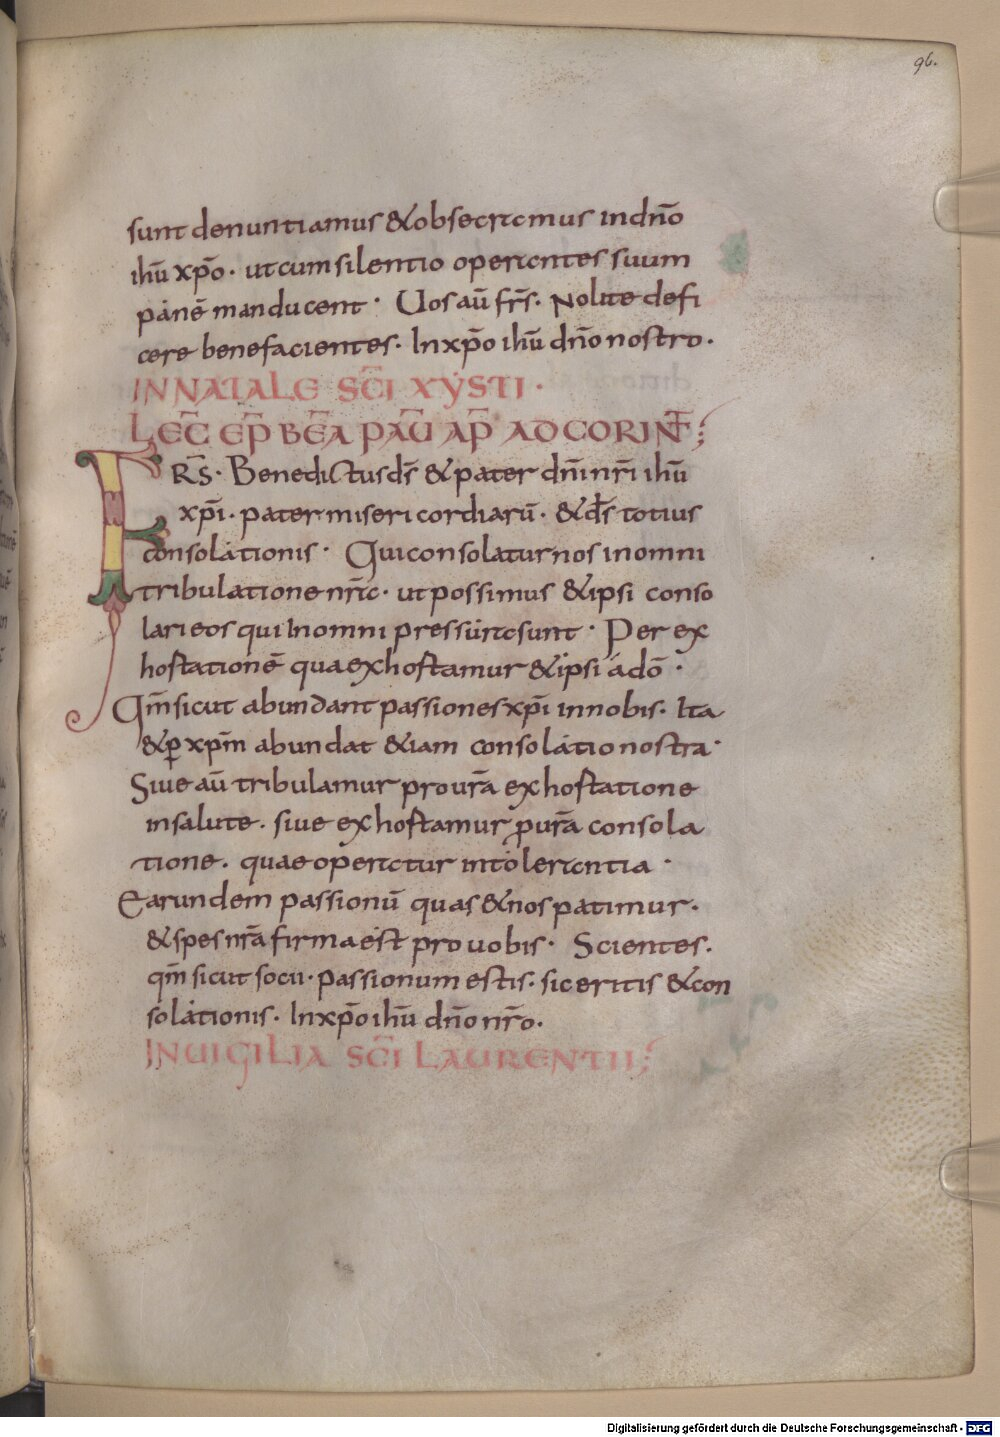 96.
sunt denuntiamus & obsecramus in dn̄o
ihū xp̄o · ut cum silentio operantes suum
panē manducent · Uos aū fr̄s · Nolite defi
cere benefacientes · In xp̄o ihū dn̄o nostro ·
IN NATALE SC̄I XYSTI ·
LEC̄ EP̄ BEĀ PAŪ AP̄ AD CORINT̄;
FRS̄ · Benedictus ds̄ & pater dn̄i nr̄i ihū
xp̄i · pater misericordiarū · & ds̄ totius
consolationis · Qui consolatur nos in omni
tribulatione nr̄a · ut possimus & ipsi conso
lari eos qui In omni pressura sunt · Per ex
hortationē qua exhortamur & ipsi a dō ·
Qm̄ sicut abundant passiones xp̄i in nobis · Ita
& ꝑ xpm̄ abundat &iam consolatio nostra ·
Siue aū tribulamur pro ur̄a exhortatione
in salute · siue exhortamur pro ur̄a consola
tione · quae operatur in tolerantia ·
Earundem passionū quas & nos patimur ·
& spes nr̄a firma est pro uobis · Scientes ·
qm̄ sicut socii · passionum estis · sic eritis & con
solationis · In xp̄o ihū dn̄o nr̄o ·
IN UIGILIA SC̄I LAURENTII;
Digitalisierung gefördert durch die Deutsche Forschungsgemeinschaft - DFG